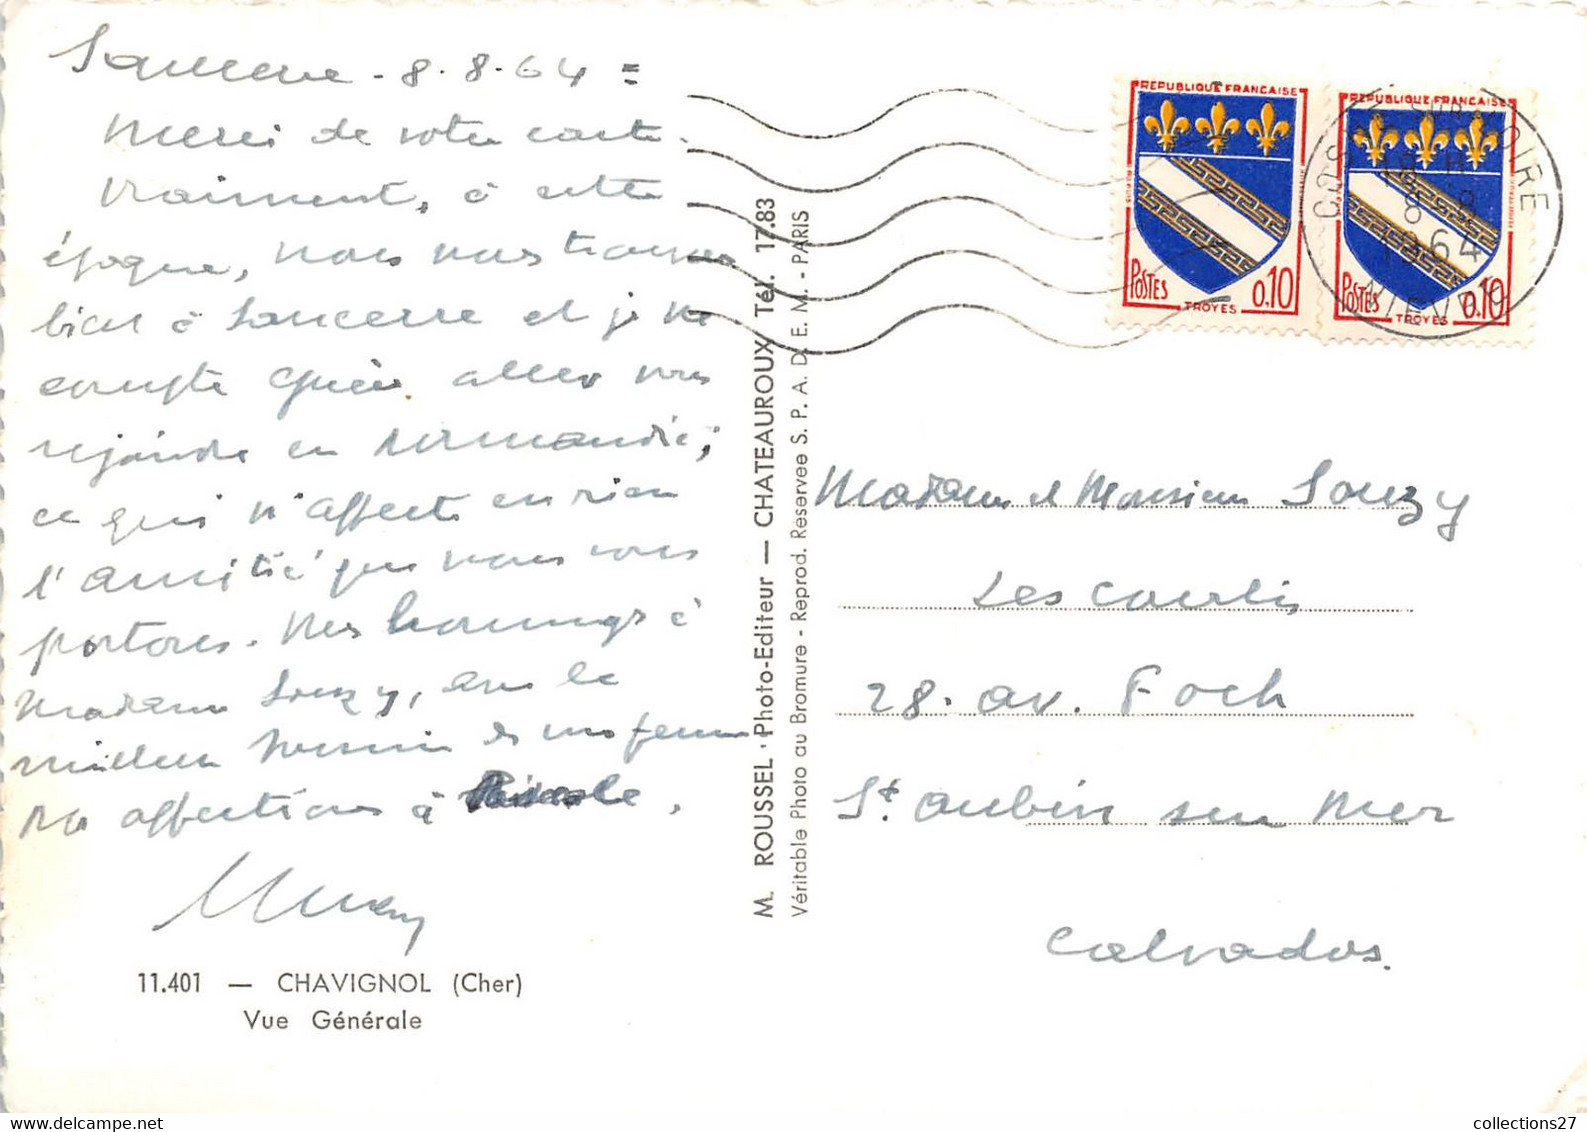 Sancerre - 8.8.64 =
Merci de votre carte.
Vraiment, à cette
époque, nous nous trouvons
bien à Sancerre et je ne
compte guère aller vous
rejoindre en Normandie;
ce qui n'affecte en rien
l'amitié que nous vous
portons. Mes hommages à
Madame Souzy, avec le
meilleur souvenir de ma femme
Nos affections à
11.401 — CHAVIGNOL (Cher)
Vue Générale
M. ROUSSEL, Photo-Editeur — CHATEAUROUX Tél. 17.83
Véritable Photo au Bromure - Reprod. Réservee S. P. A. D. E. M. - PARIS
REPUBLIQUE FRANÇAISE
POSTES 0.10
TROYES
REPUBLIQUE FRANÇAISE
POSTES 0.10
TROYES
COSNE SUR LOIRE
18 H
8 - 8
1964
NIEVRE
Madame et Monsieur Souzy
Les Courlis
28. av. Foch
St. Aubin sur Mer
Calvados.
collections27